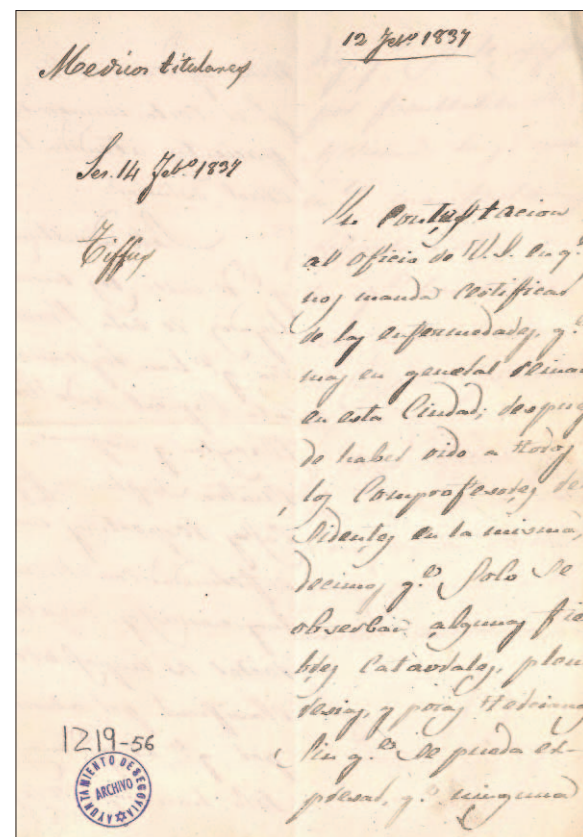 12 Febº 1837
Medicos titulares
Ses. 14 Febº 1837
Tiffus
En Contestacion
al oficio de V.S. en q.e
nos manda Certificar
de las enfermedades, q.e
mas en general reinan
en esta Ciudad; despues
de haber oido a todos
los Comprofesores re
sidentes en la misma,
decimos q.e Solo Se
observan algunas fie
bres Catarrales, pleu
resias, y pocas
Sin q.e Se pueda ex-
presar, q.e ninguna
1219-56
AYUNTAMIENTO DE SEGOVIA
ARCHIVO